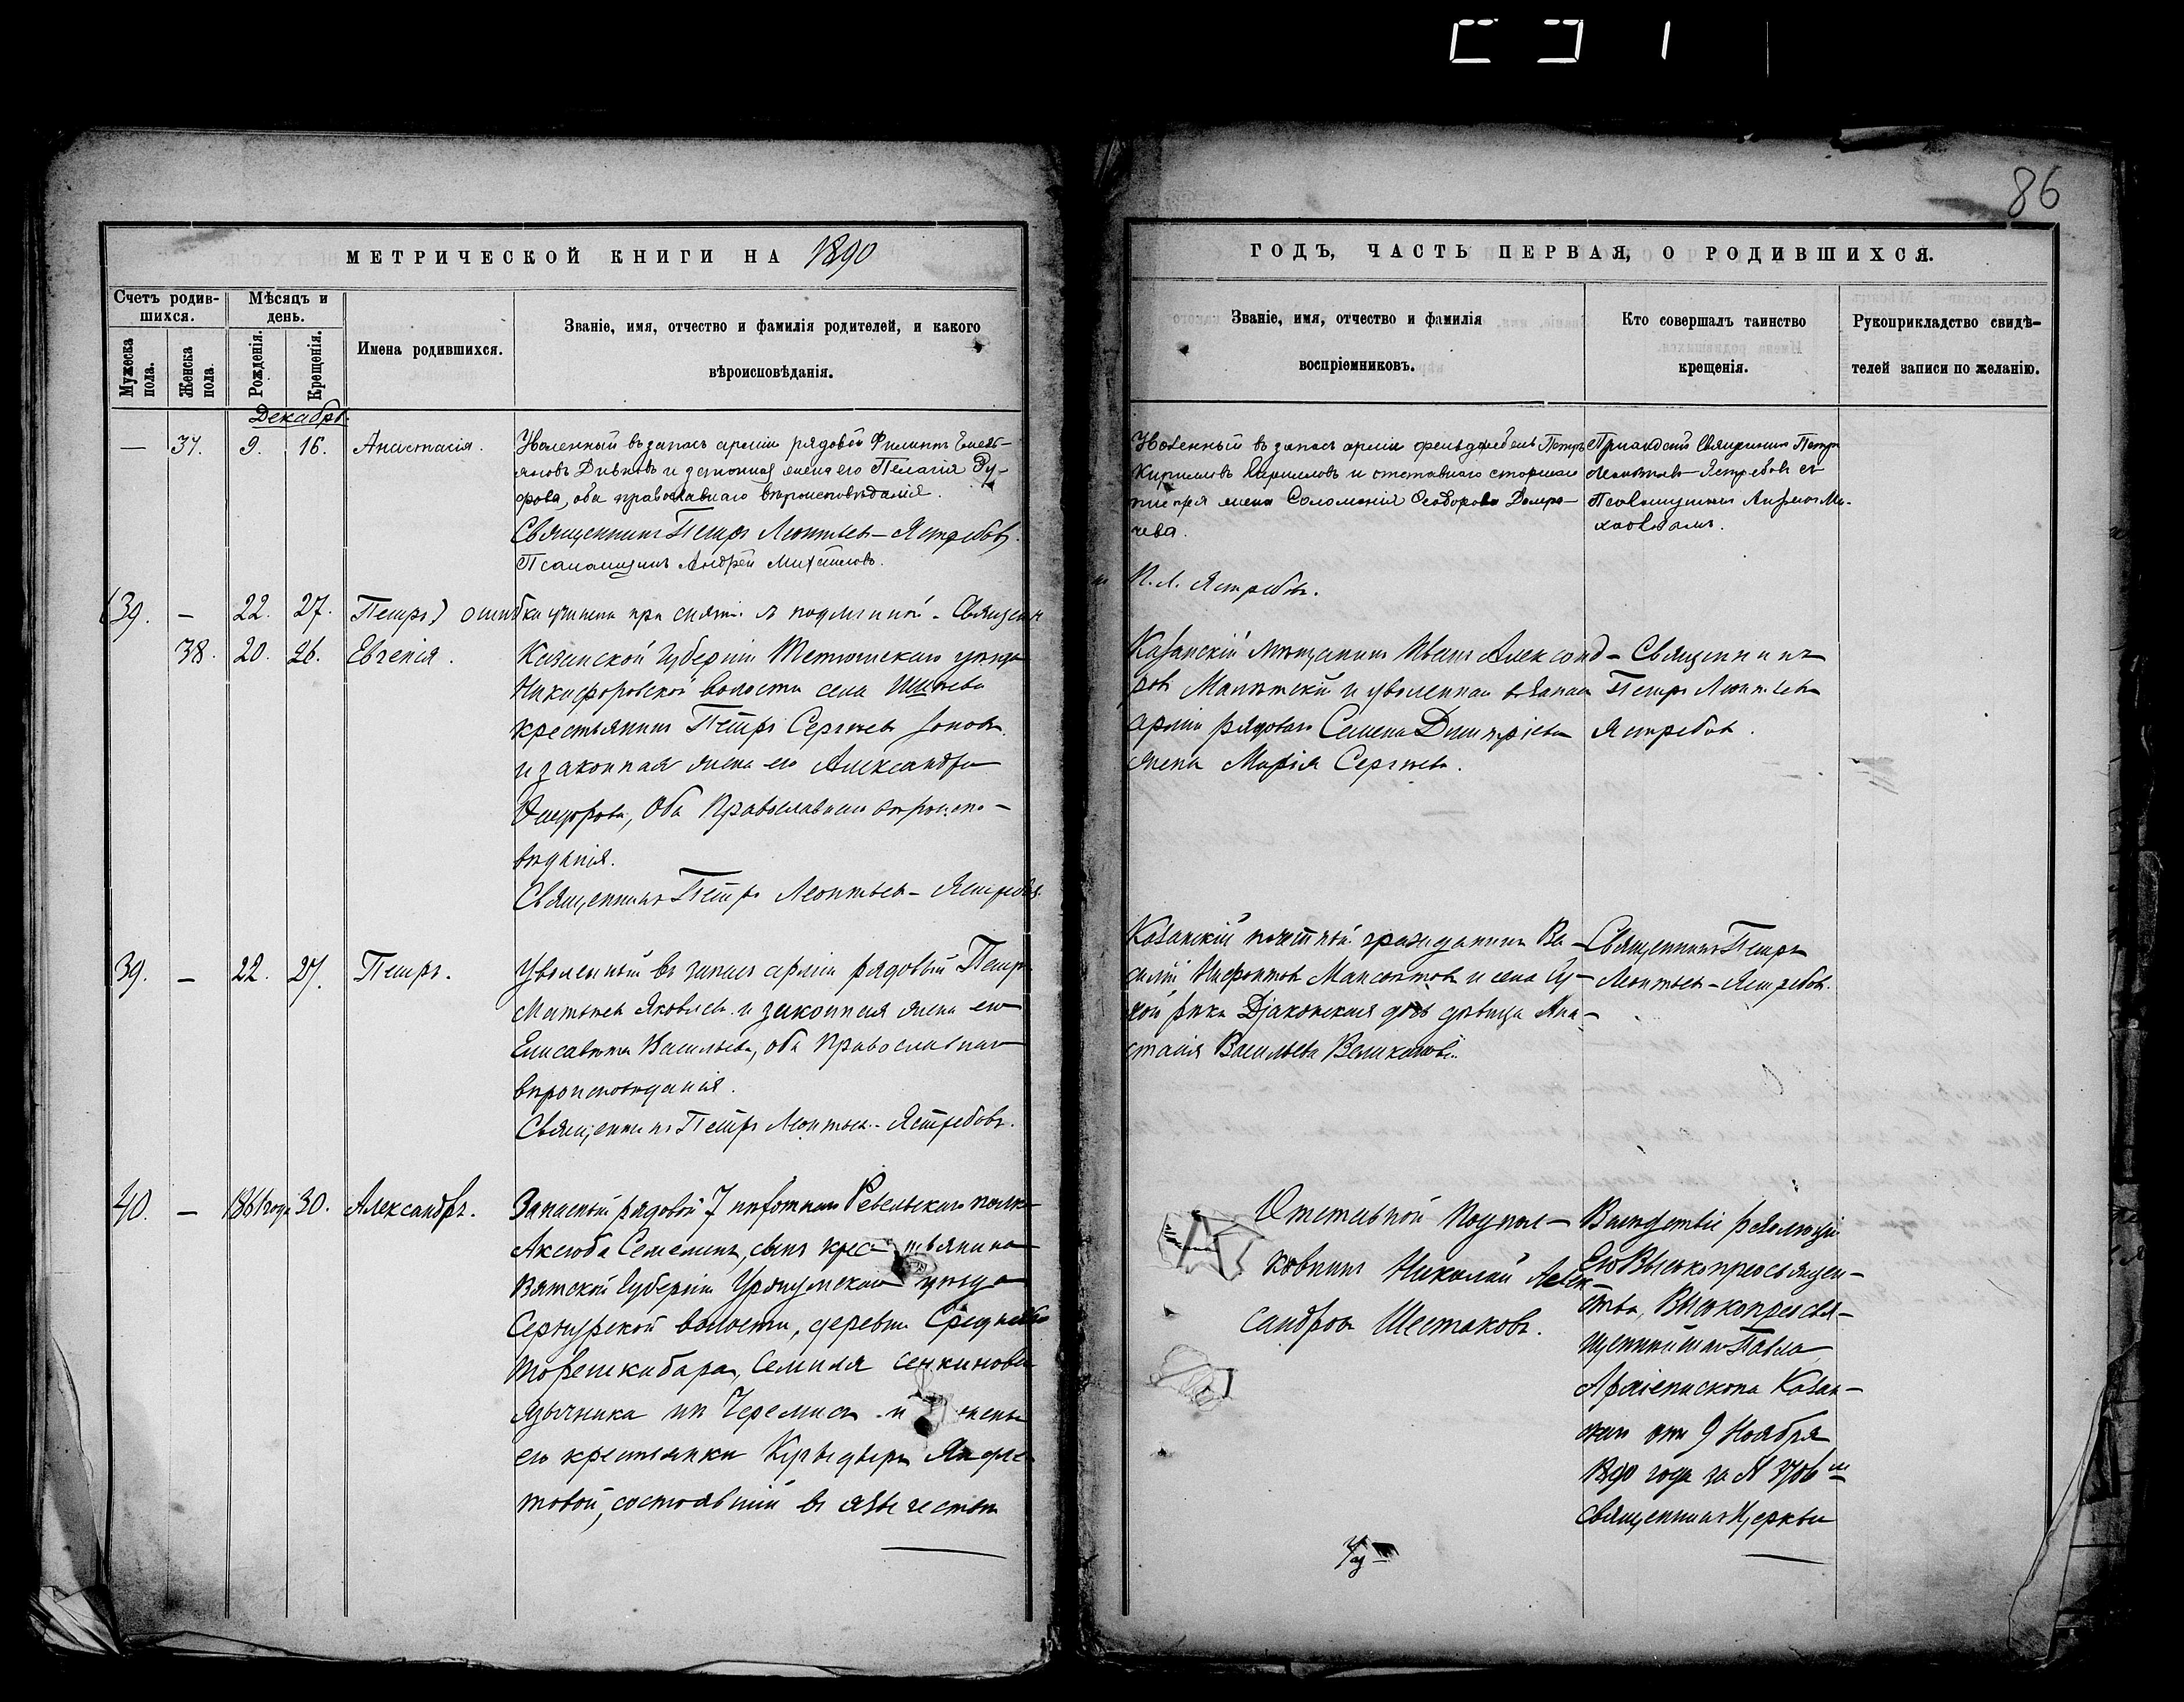 86
МЕТРИЧЕСКОЙ КНИГИ НА 1890
ГОДЪ, ЧАСТЬ ПЕРВАЯ, О РОДИВШИХСЯ.
Счетъ родив-
шихся.
Мужеска пола.
Женска пола.
Мѣсяцъ и
день.
Рожденія.
Крещенія.
Имена родившихся.
Званіе, имя, отчество и фамилія родителей, и какого
вѣроисповѣданія.
Званіе, имя, отчество и фамилія
воспріемниковъ.
Кто совершалъ таинство
крещенія.
Рукоприкладство свидѣ-
телей записи по желанію.
Декабрь.
— 37. 9. 16. Анастасія.
Уволенный въ запасъ арміи рядовой Филиппъ Емель-
яновъ и законная жена его Пелагія
оба православнаго вѣроисповѣданія.
Священникъ Петръ Леонтьевъ-Ястребовъ.
Псаломщикъ Андрей Михайловъ.
Уволенный въ запасъ арміи фельдфебель Петръ
Кириловъ Кириловъ и отставнаго старшаго
жена Соломонія Ѳеодорова
чева.
Приходскій Священникъ Петръ
Леонтьевъ-Ястребовъ съ
Псаломщикомъ Андреемъ Ми-
хайловымъ.
(39. — 22. 27. Петръ) ошибка учинена при снятіи съ подлинной. Священ
П. Л. Ястребовъ.
38. 20. 26. Евгенія.
Казанской Губерніи Тетюшскаго уѣзда
Никифоровской волости села
крестьянинъ Петръ Сергѣевъ Іоновъ
и законная жена его Александра
Ѳедорова, оба Православнаго вѣроиспо-
вѣданія.
Священникъ Петръ Леонтьевъ-Ястребовъ.
Казанскій Мѣщанинъ Иванъ Александ-
ровъ и уволеннаго въ запасъ
арміи рядоваго Семена Димитріева
жена Марія Сергѣева.
Священникъ
Петръ Леонтьевъ
Ястребовъ.
39. — 22. 27. Петръ.
Уволенный въ запасъ арміи рядовый Петръ
Матвѣевъ Яковлевъ и законная жена его
Елисавета Васильева, оба Православнаго
вѣроисповѣданія.
Священникъ Петръ Леонтьев.-Ястребовъ.
Казанскій почетный гражданинъ Ва-
силій Нифонтовъ Мансонтовъ и села Су-
хой рѣка Діаконская дочь дѣвица Ана-
стасія Васильева
Священникъ Петръ
Леонтьевъ-Ястребовъ.
40. — 1861 года 30. Александръ.
Запасный рядовой 7 пѣхотнаго Ревельскаго полка
Аксюба Семеменъ, сынъ крестьянина
Вятской Губерніи Уржумскаго уѣзда
Сернурской волости, деревни Средняго
Торешкибара, Семеля Сенкинова
язычника изъ Черемисъ и жены
его крестьянки
товой, состоявшій въ язычествѣ
Отставной Подпол-
ковникъ Николай Алек-
сандровъ Шестаковъ.
Вслѣдствіе резолюціи
Его Высокопреосвящен-
ства, Высокопреосвя-
щеннѣйшаго Павла
Архіепископа Казан-
скаго отъ 9 Ноября
1890 года за № 3706
Священникъ Церкви